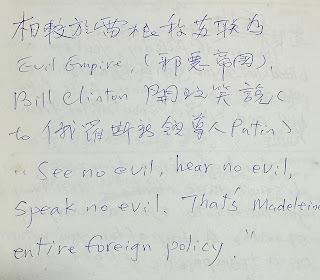 相較於雷根称苏联為
Evil Empire, (邪惡帝国),
Bill Clinton 開玩笑說(
to 俄羅斯新領導人 Putin)
"See no evil, hear no evil,
speak no evil. That's Madeleine
entire foreign policy."